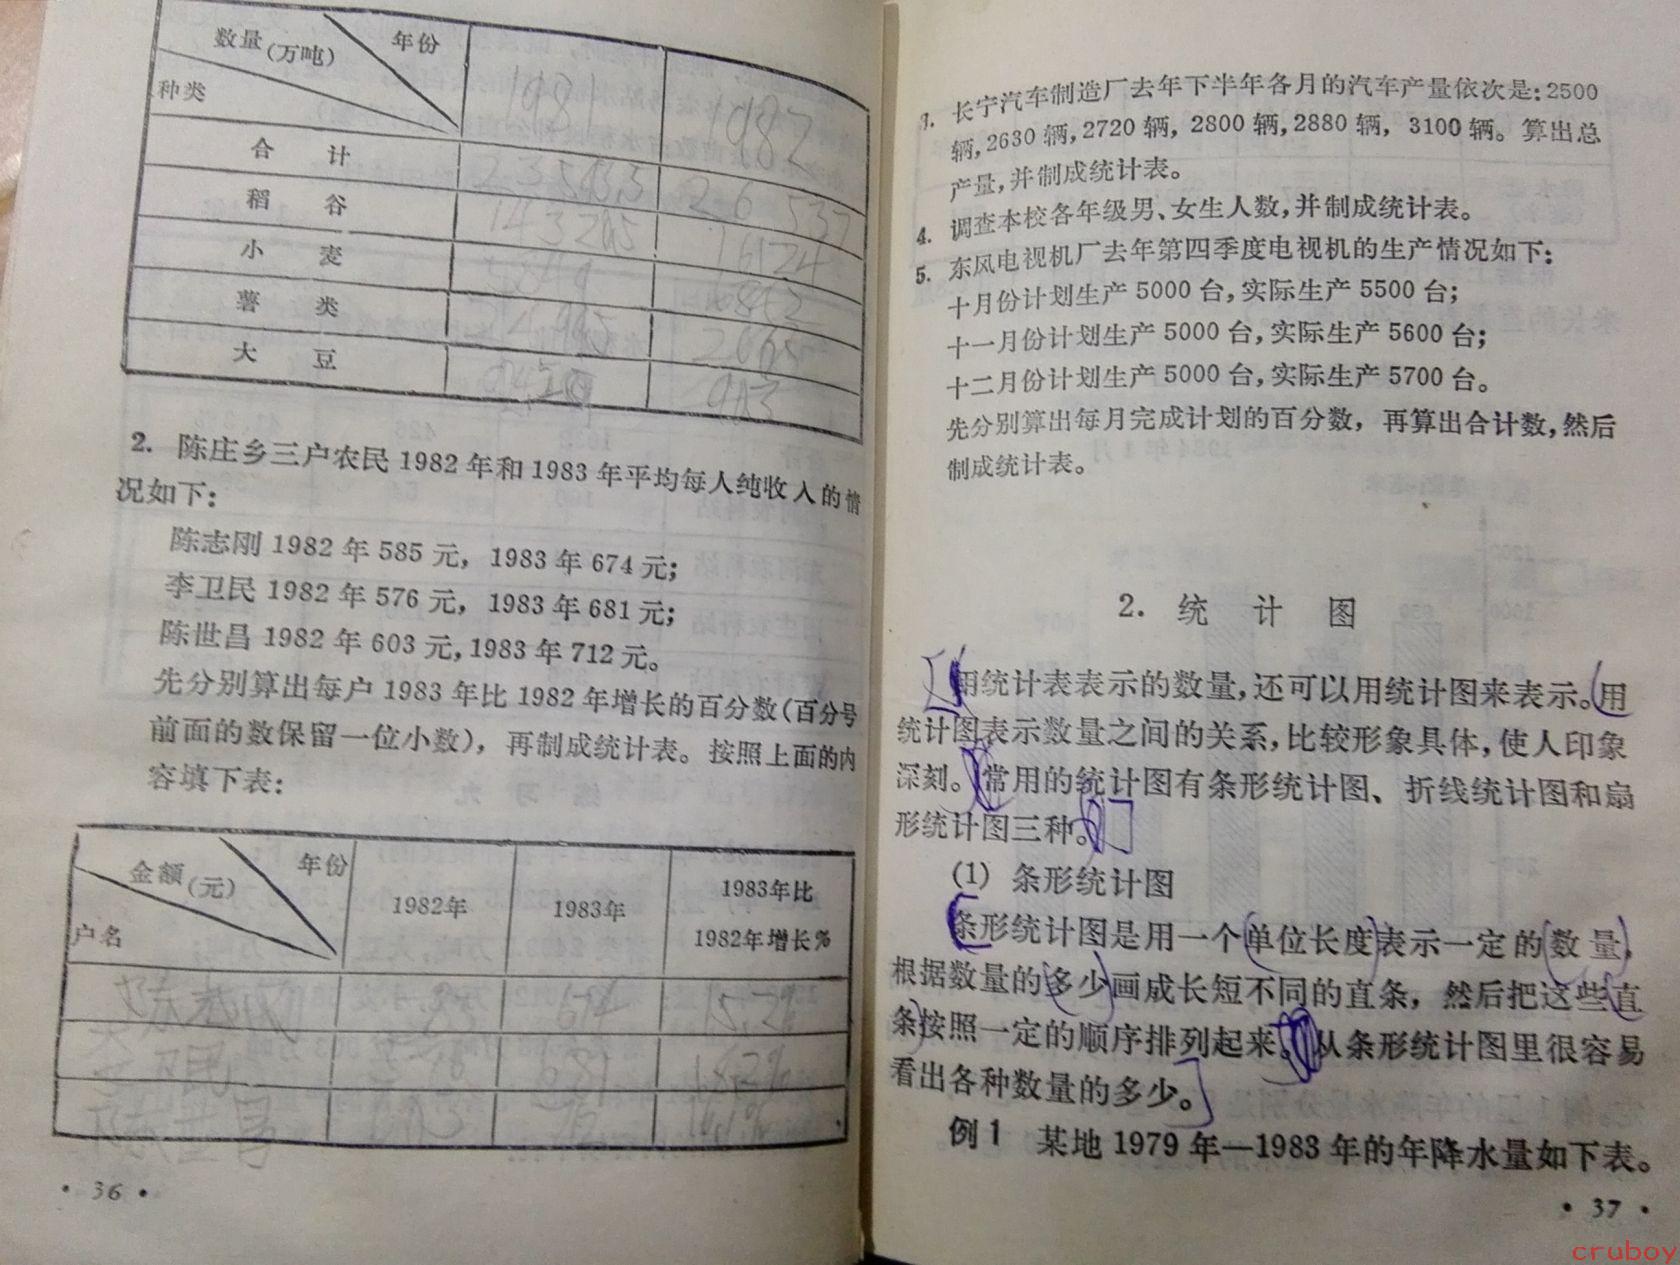 数量(万吨) 年份
种类
1981 1982
合 计
稻 谷
小 麦
薯 类
大 豆
2. 陈庄乡三户农民 1982 年和 1983 年平均每人纯收入的情
况如下:
陈志刚 1982 年 585 元, 1983 年 674 元;
李卫民 1982 年 576 元, 1983 年 681 元;
陈世昌 1982 年 603 元,1983 年 712 元。
先分别算出每户 1983 年比 1982 年增长的百分数(百分号
前面的数保留一位小数), 再制成统计表。按照上面的内
容填下表:
金额(元) 年份
户名
1982年 1983年 1983年比
1982年增长%
674 15.2%
681 18.2%
陈世昌
· 36 ·
3. 长宁汽车制造厂去年下半年各月的汽车产量依次是:2500
辆,2630 辆,2720 辆, 2800 辆,2880 辆, 3100 辆。算出总
产量,并制成统计表。
4. 调查本校各年级男、女生人数,并制成统计表。
5. 东风电视机厂去年第四季度电视机的生产情况如下:
十月份计划生产 5000 台,实际生产 5500 台;
十一月份计划生产 5000 台,实际生产 5600 台;
十二月份计划生产 5000 台,实际生产 5700 台。
先分别算出每月完成计划的百分数, 再算出合计数,然后
制成统计表。
2. 统 计 图
用统计表表示的数量,还可以用统计图来表示。用
统计图表示数量之间的关系,比较形象具体,使人印象
深刻。常用的统计图有条形统计图、折线统计图和扇
形统计图三种。
(1) 条形统计图
条形统计图是用一个单位长度表示一定的数量,
根据数量的多少画成长短不同的直条, 然后把这些直
条按照一定的顺序排列起来。从条形统计图里很容易
看出各种数量的多少。
例1 某地 1979 年—1983 年的年降水量如下表。
· 37 ·
cruboy